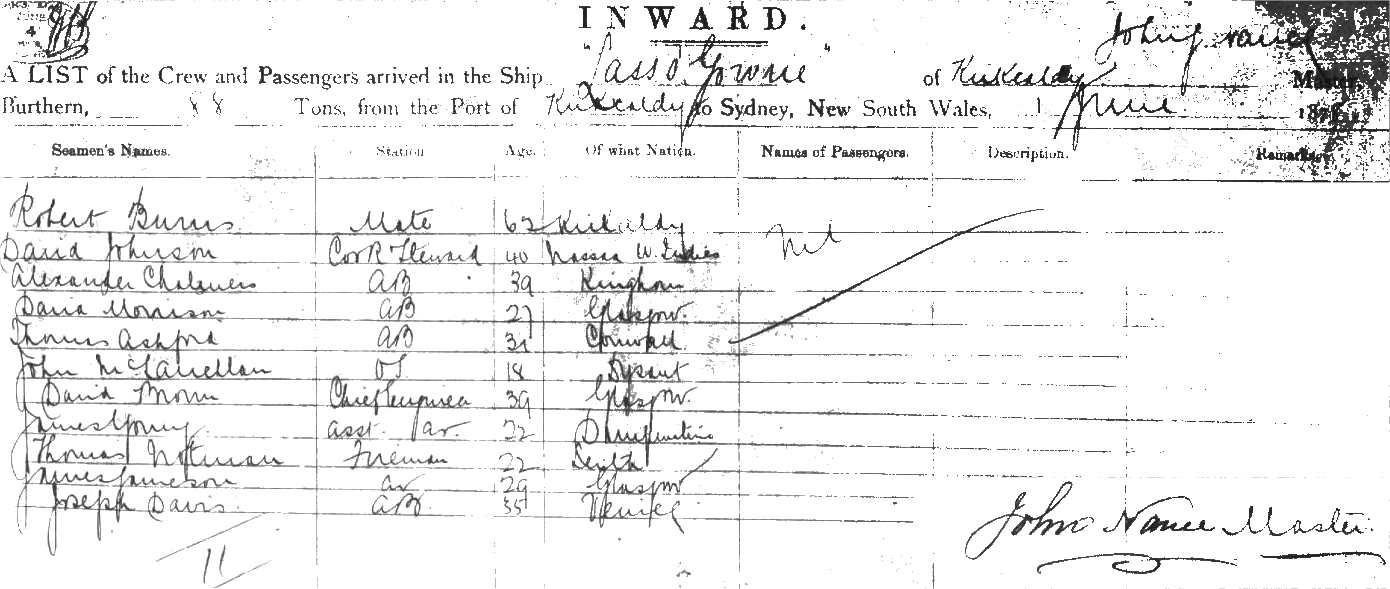 INWARD.
John Nance
A LIST of the Crew and Passengers arrived in the Ship "Lass O' Gowrie" of Kirkcaldy Master,
Burthern, 88 Tons, from the Port of Kirkcaldy to Sydney, New South Wales, 1 June 187
Seamen's Names. Station Age. Of what Nation. Names of Passengers. Description. Remarks
Robert Burns Mate 62 Kirkcaldy Nil
David Johnson Cook & Steward 40 Nassau W. Indies
Alexander Chalmers AB 39 Kinghorn
David Morrison AB 27 Glasgow.
Thomas Ashford AB 31 Cornwall
John McLauchlan OS 18 Dysart
David Chief Engineer 39 Glasgow.
James Young asst. Do. 22 Dunfermline
Thomas Notman Fireman 22 Leith
James Jameson Do 29 Glasgow
Joseph Davis AB. 35 Venice
John Nance Master
11